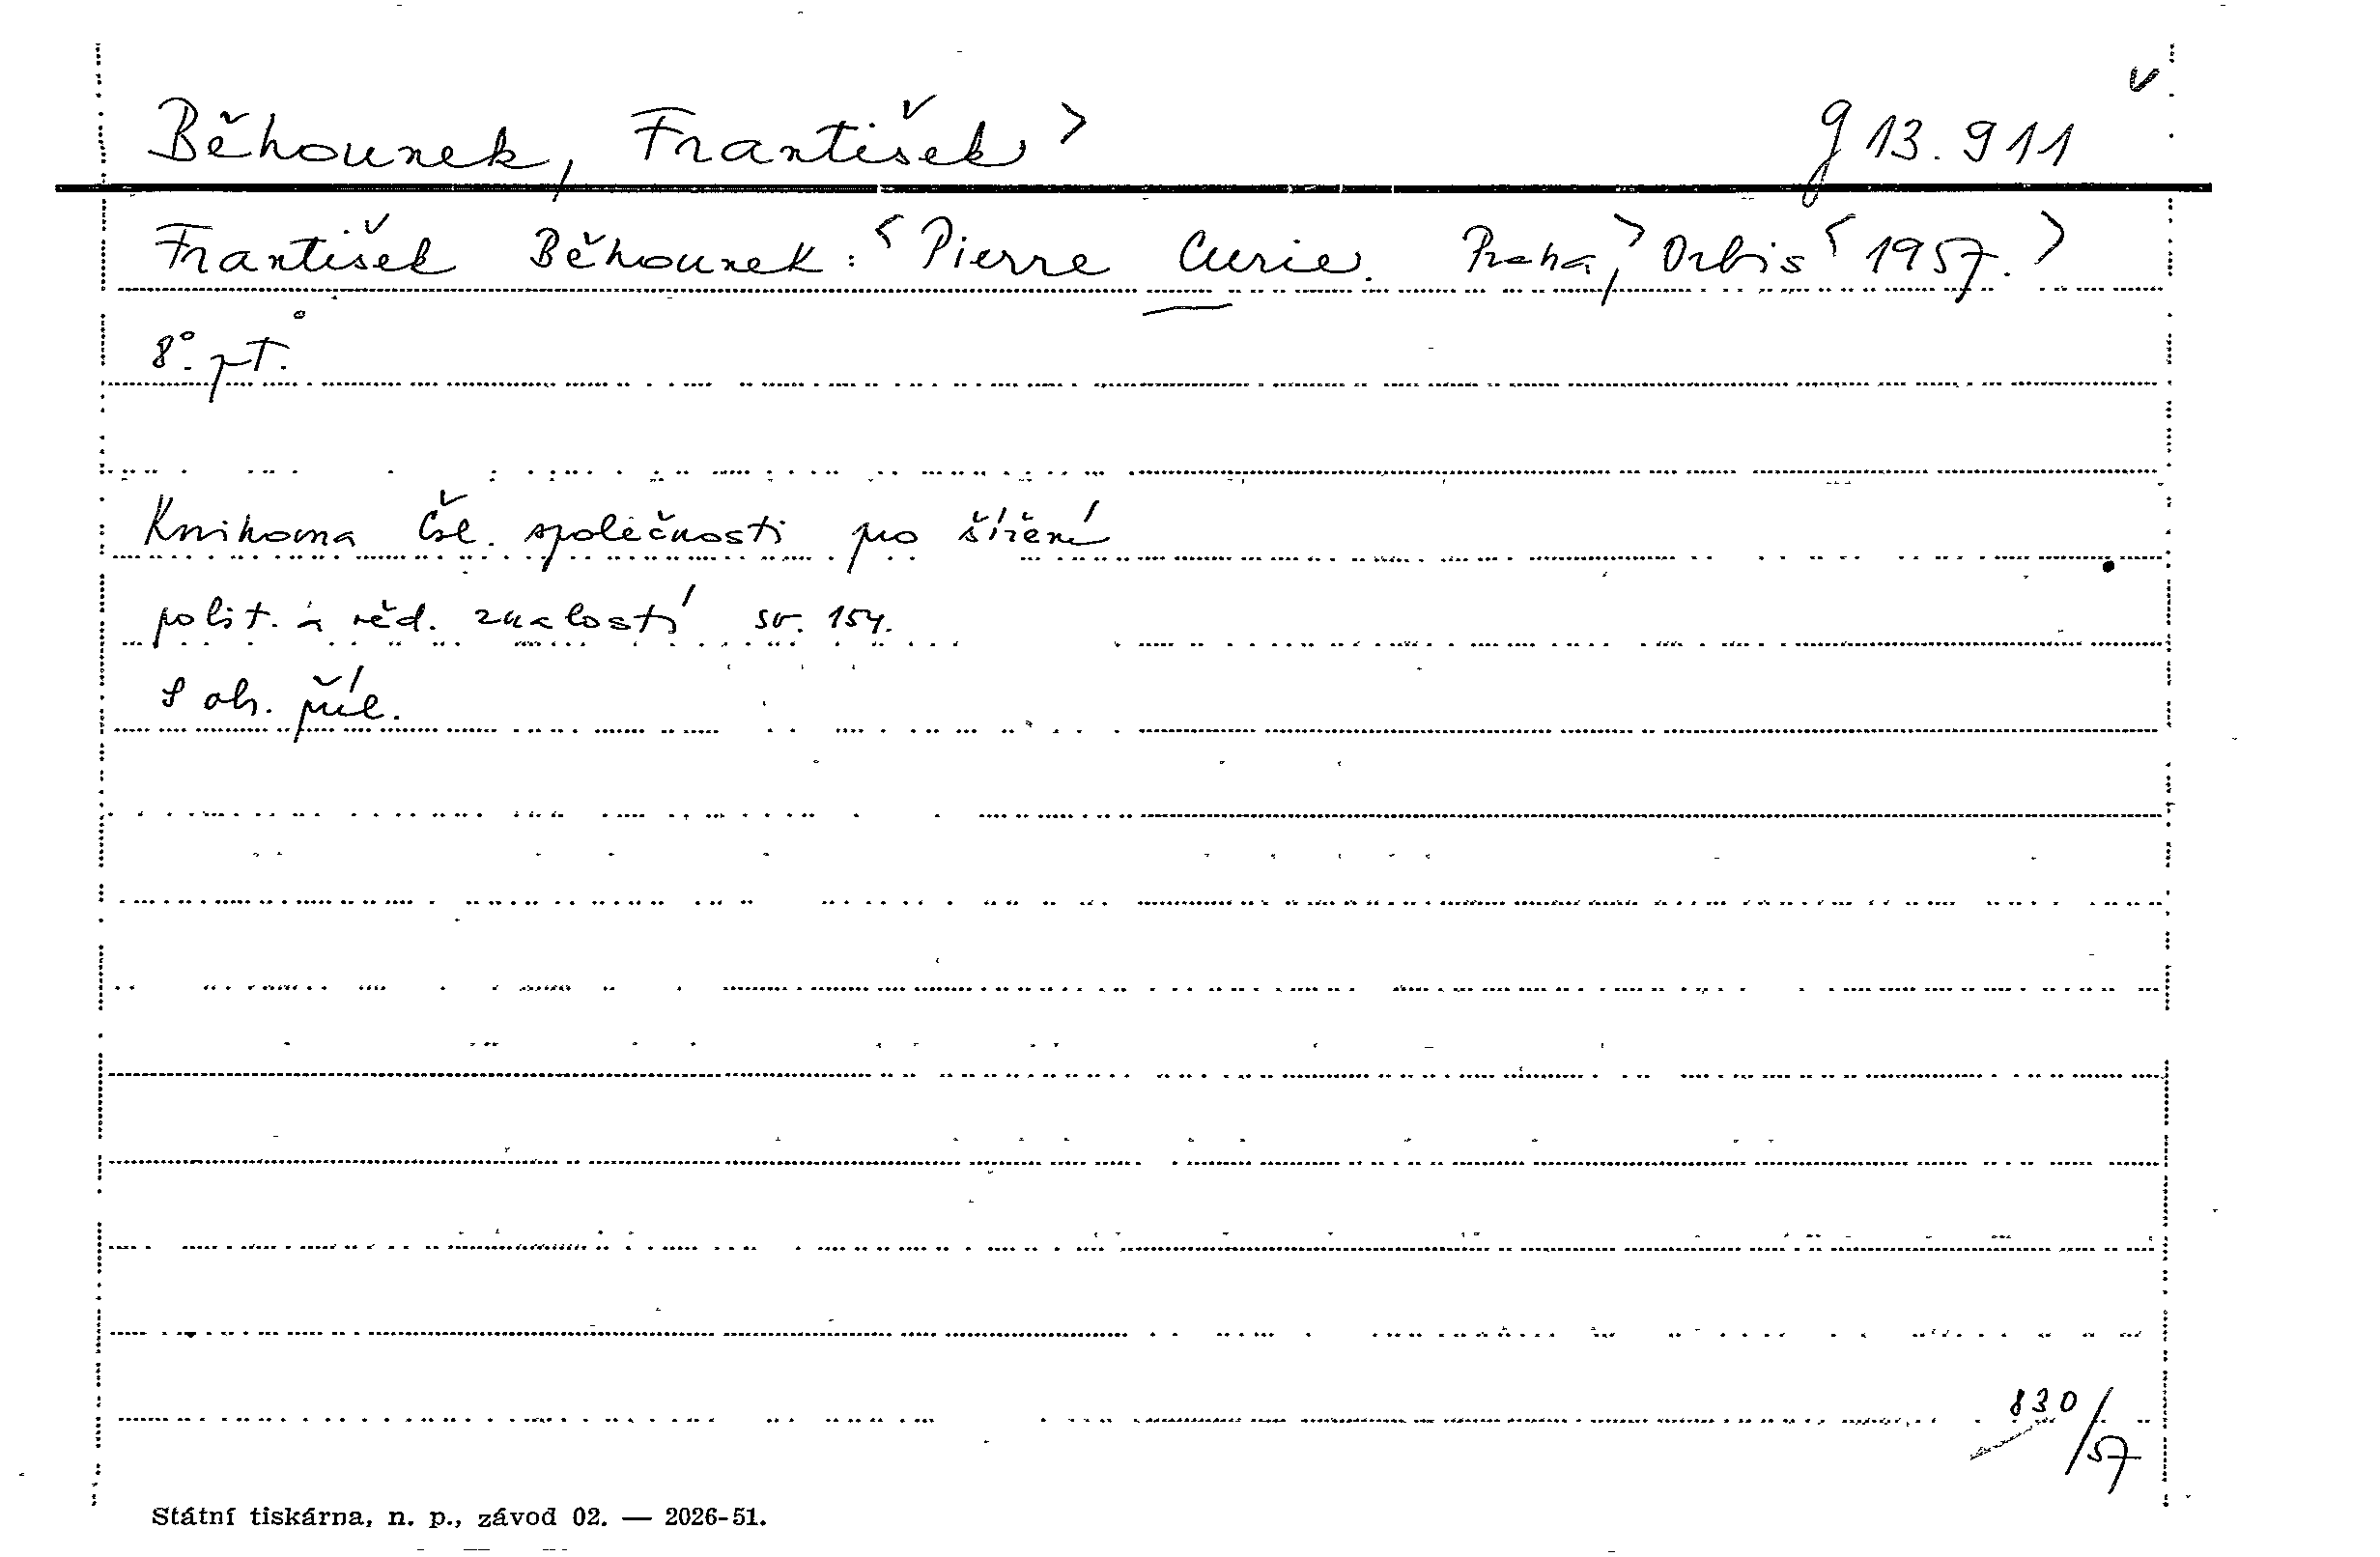 v
Běhounek, František > g 13.911
František Běhounek: < Pierre Curie. Praha, > Orbis < 1957. >
8°. pt.
Knihovna Čsl. společnosti pro šíření
polit. a věd. znalostí sv. 154.
S ob. příl.
830/57
Státní tiskárna, n. p., závod 02. — 2026-51.